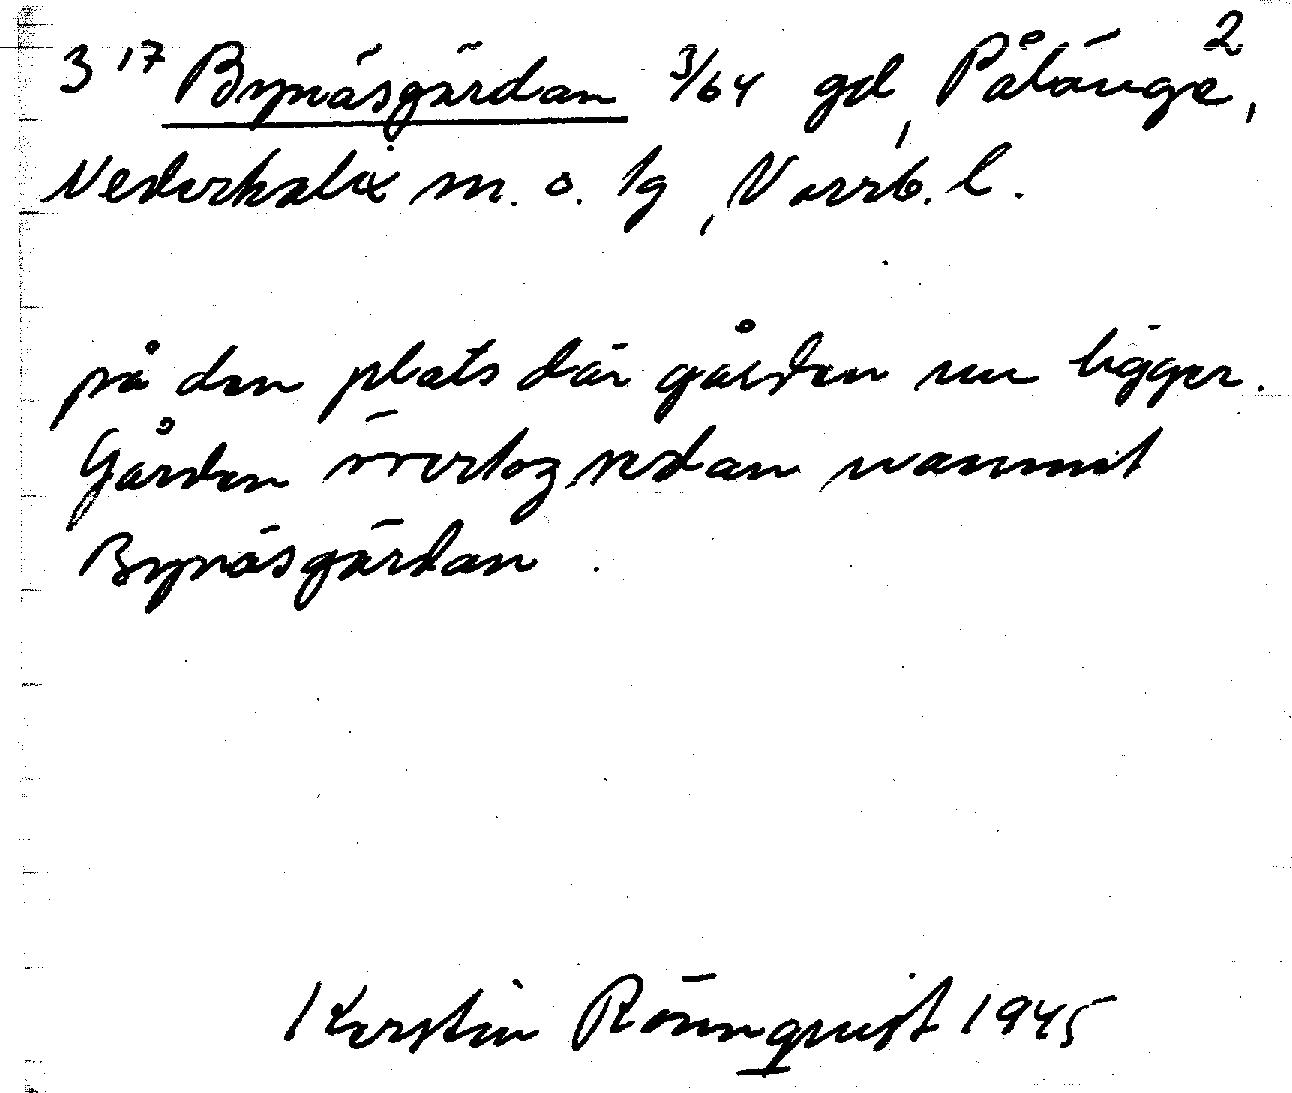 2
3 17 Bynäsgärdan 3/64 gd, Pålänge,
Nederkalix sn. o. tg, Norrb. l.
på den plats där gården nu ligger.
Gården övertog sedan namnet
Bynäsgärdan.
Kerstin Rönnqvist 1945